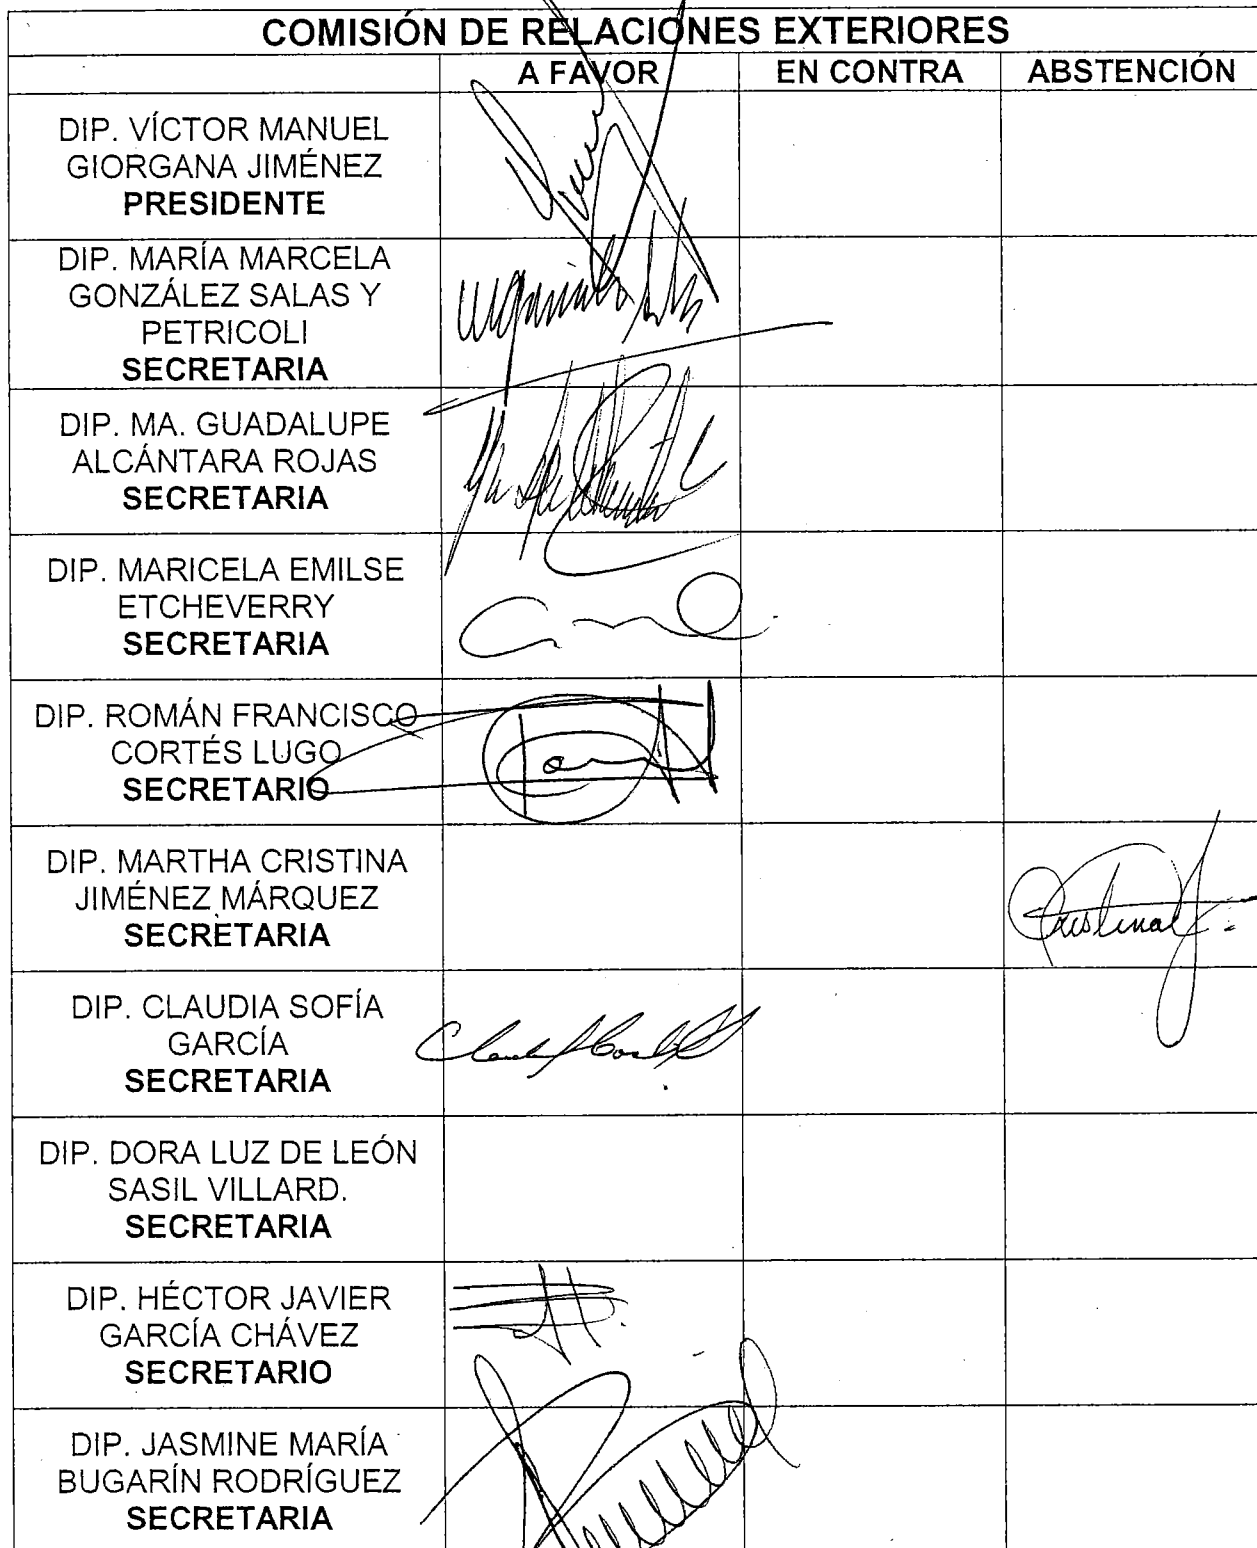 COMISIÓN DE RELACIONES EXTERIORES
A FAVOR EN CONTRA ABSTENCIÓN
DIP. VÍCTOR MANUEL
GIORGANA JIMÉNEZ
PRESIDENTE
DIP. MARÍA MARCELA
GONZÁLEZ SALAS Y
PETRICOLI
SECRETARIA
DIP. MA. GUADALUPE
ALCÁNTARA ROJAS
SECRETARIA
DIP. MARICELA EMILSE
ETCHEVERRY
SECRETARIA
DIP. ROMÁN FRANCISCO
CORTÉS LUGO
SECRETARIO
DIP. MARTHA CRISTINA
JIMÉNEZ MÁRQUEZ
SECRETARIA
DIP. CLAUDIA SOFÍA
GARCÍA
SECRETARIA
DIP. DORA LUZ DE LEÓN
SASIL VILLARD.
SECRETARIA
DIP. HÉCTOR JAVIER
GARCÍA CHÁVEZ
SECRETARIO
DIP. JASMINE MARÍA
BUGARÍN RODRÍGUEZ
SECRETARIA